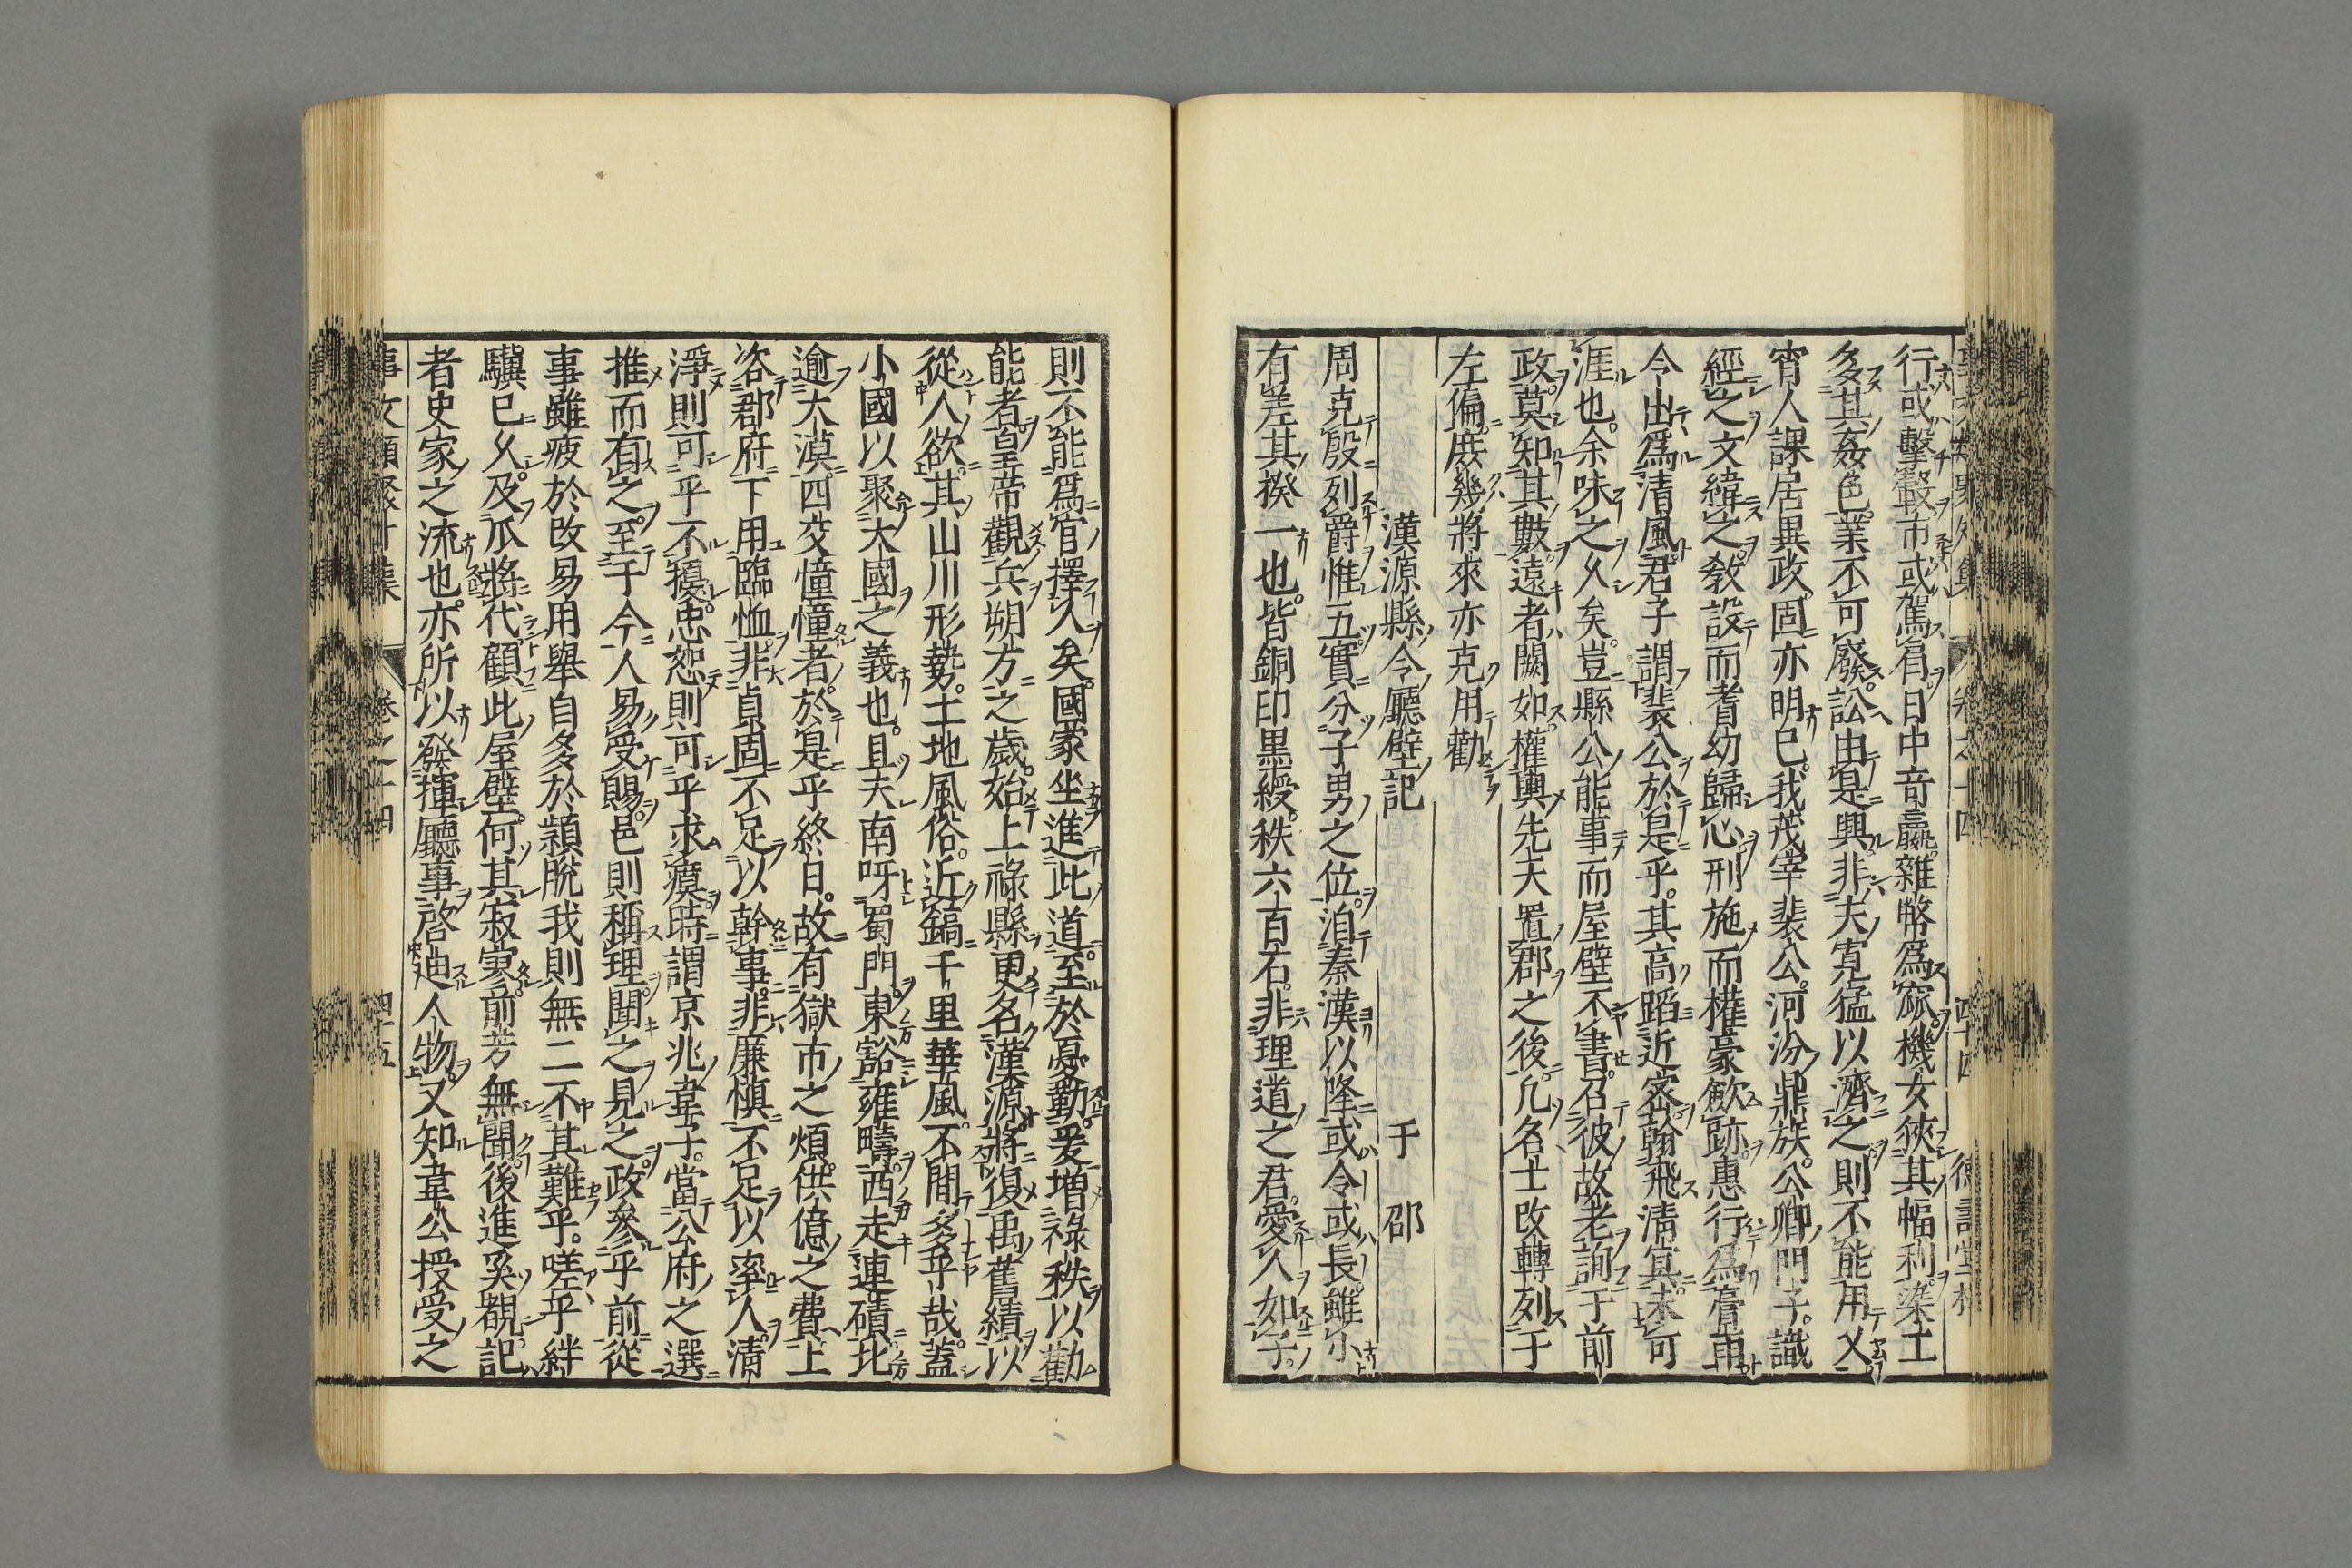 行或擊轂市或駕肩日中竒贏雜幣爲窳機女狹其幅利染工
多其姦色業不可廢訟由是興非夫寛猛以濟之則不能用乂
宵人課居異政固亦明已我茂宰裴公河汾鼎族公卿門子識
經之文緯之敎設而耆幼歸心刑施而權豪歛跡惠行爲膏雨
令出爲清風君子謂裴公於是乎其高蹈近密翰飛清冥未可
涯也余味之久矣豈縣公能事而屋壁不書召彼故老詢于前
政莫知其數遠者闕如權輿先天置郡之後凢名士改轉列于
左偏庶幾將來亦克用勸
漢源縣令廳壁記 于邵
周克殷列爵惟五實分子男之位洎秦漢以降或令或長雖小
有差其揆一也皆銅印黑綬秩六百石非理道之君愛人如子
則不能爲官擇人矣國家坐進此道至於憂勤爰増祿秩以勸
能者皇帝觀兵朔方之歲始上祿縣更名漢源將復禹舊績以
從人欲其山川形勢土地風俗近鎬千里華風不間多乎哉蓋
小國以聚大國之義也且夫南呀蜀門東豁雍疇西走連磧北
逾大漠四交憧憧者於是乎終日故有獄市之煩供億之費上
咨郡府下用臨恤非貞固不足以幹事非廉愼不足以率人清
淨則可乎不擾忠恕則可乎求瘼時謂京兆韋子當公府之選
推而有之至于今人易受賜邑則稱理聞之見之政參乎前從
事雖疲於改易用舉自多於頴脫我則無二不其難乎嗟乎絆
驥已久及瓜將代顧此屋壁何其寂寥前芳無聞後進奚覩記
者史家之流也亦所以發揮廳事啓廸人物又知韋公授受之
卷之十四 四十五